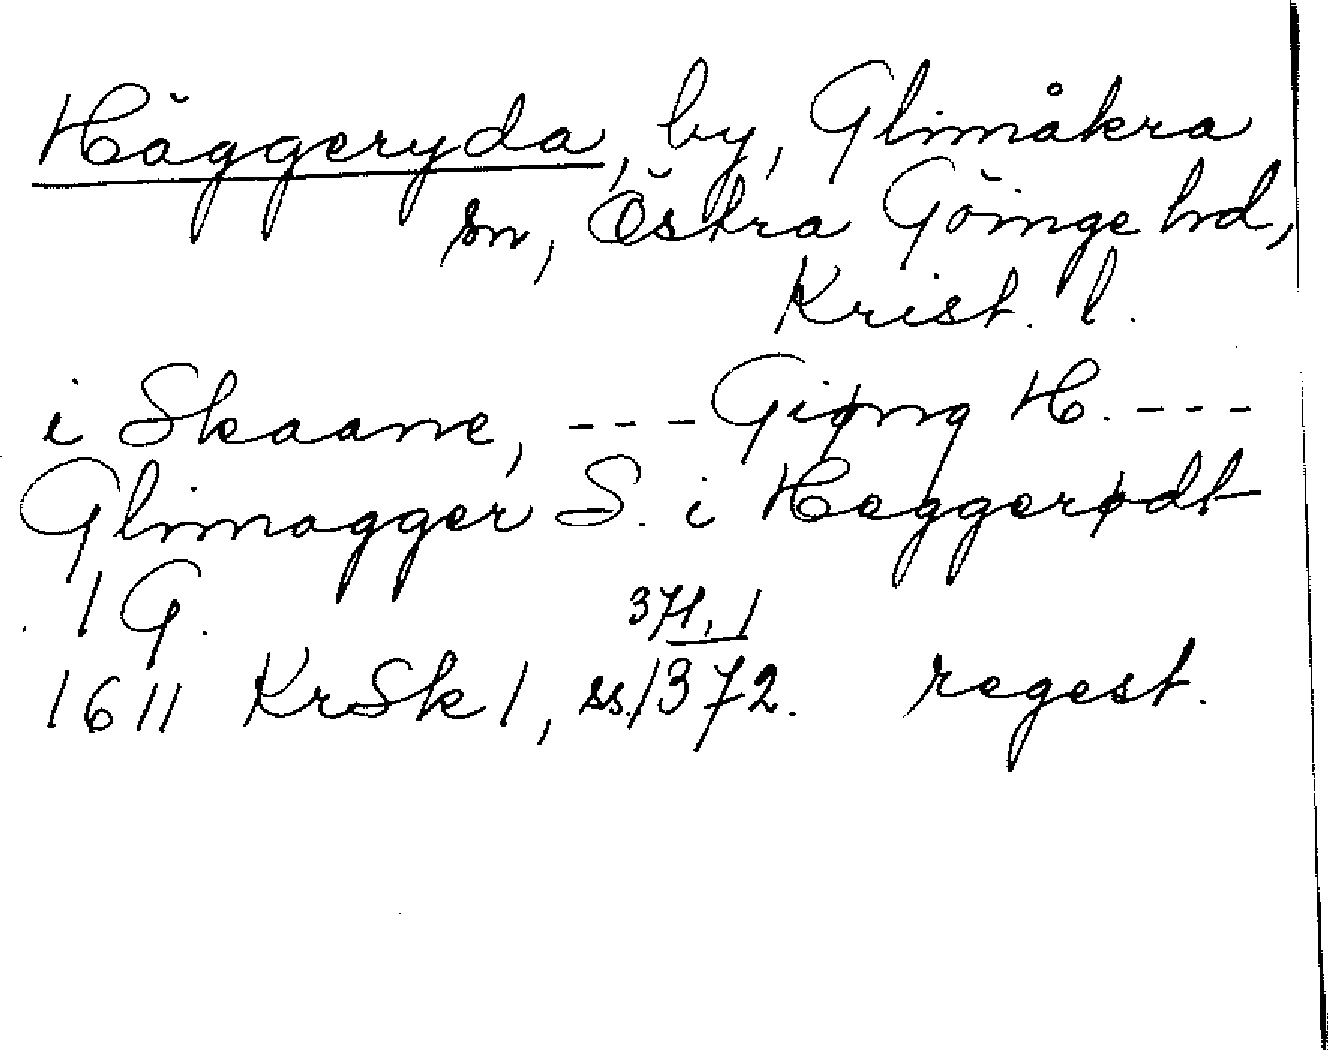 Häggeryda, by, Glimåkra
sn, Östra Göinge hrd,
Krist. l.
i Skaane, --- Giøng H. ---
Glimagger S. i Heggerødt
1 G.
371, 1
1611 KrSk 1, ss. 1372. regest.